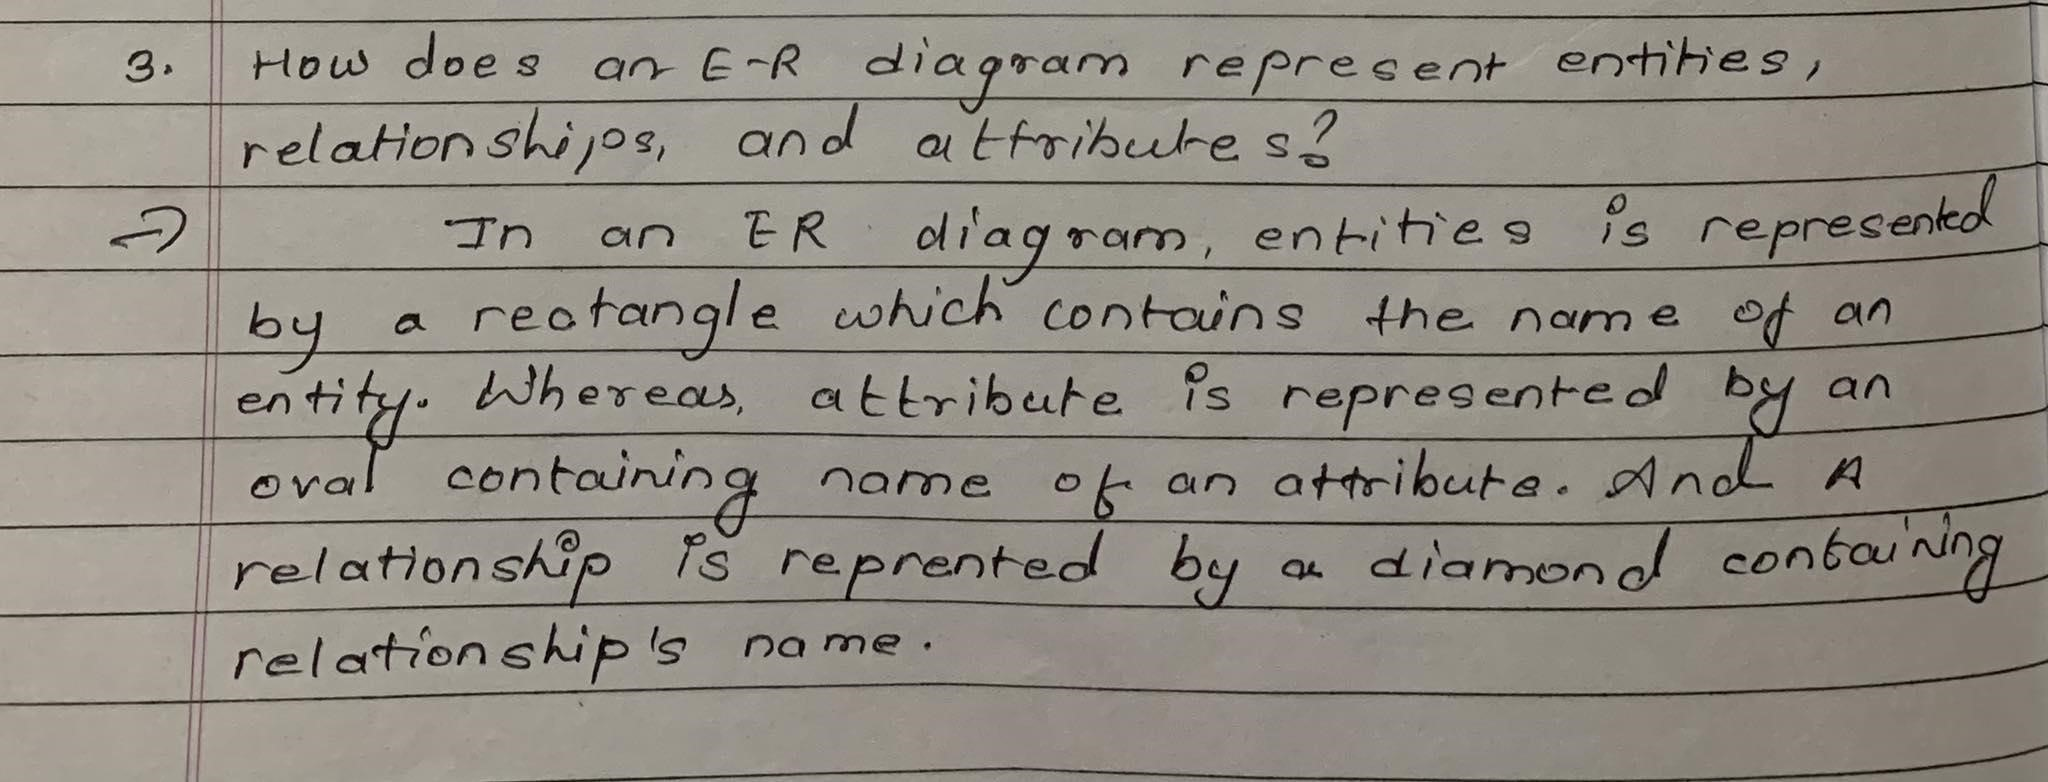 3. How does an E-R diagram represent entities,
relationships, and attributes?
⇒ In an ER diagram, entities is represented
by a rectangle which contains the name of an
entity. Whereas, attribute is represented by an
oval containing name of an attribute. And A
relationship is reprented by a diamond containing
relationship's name.